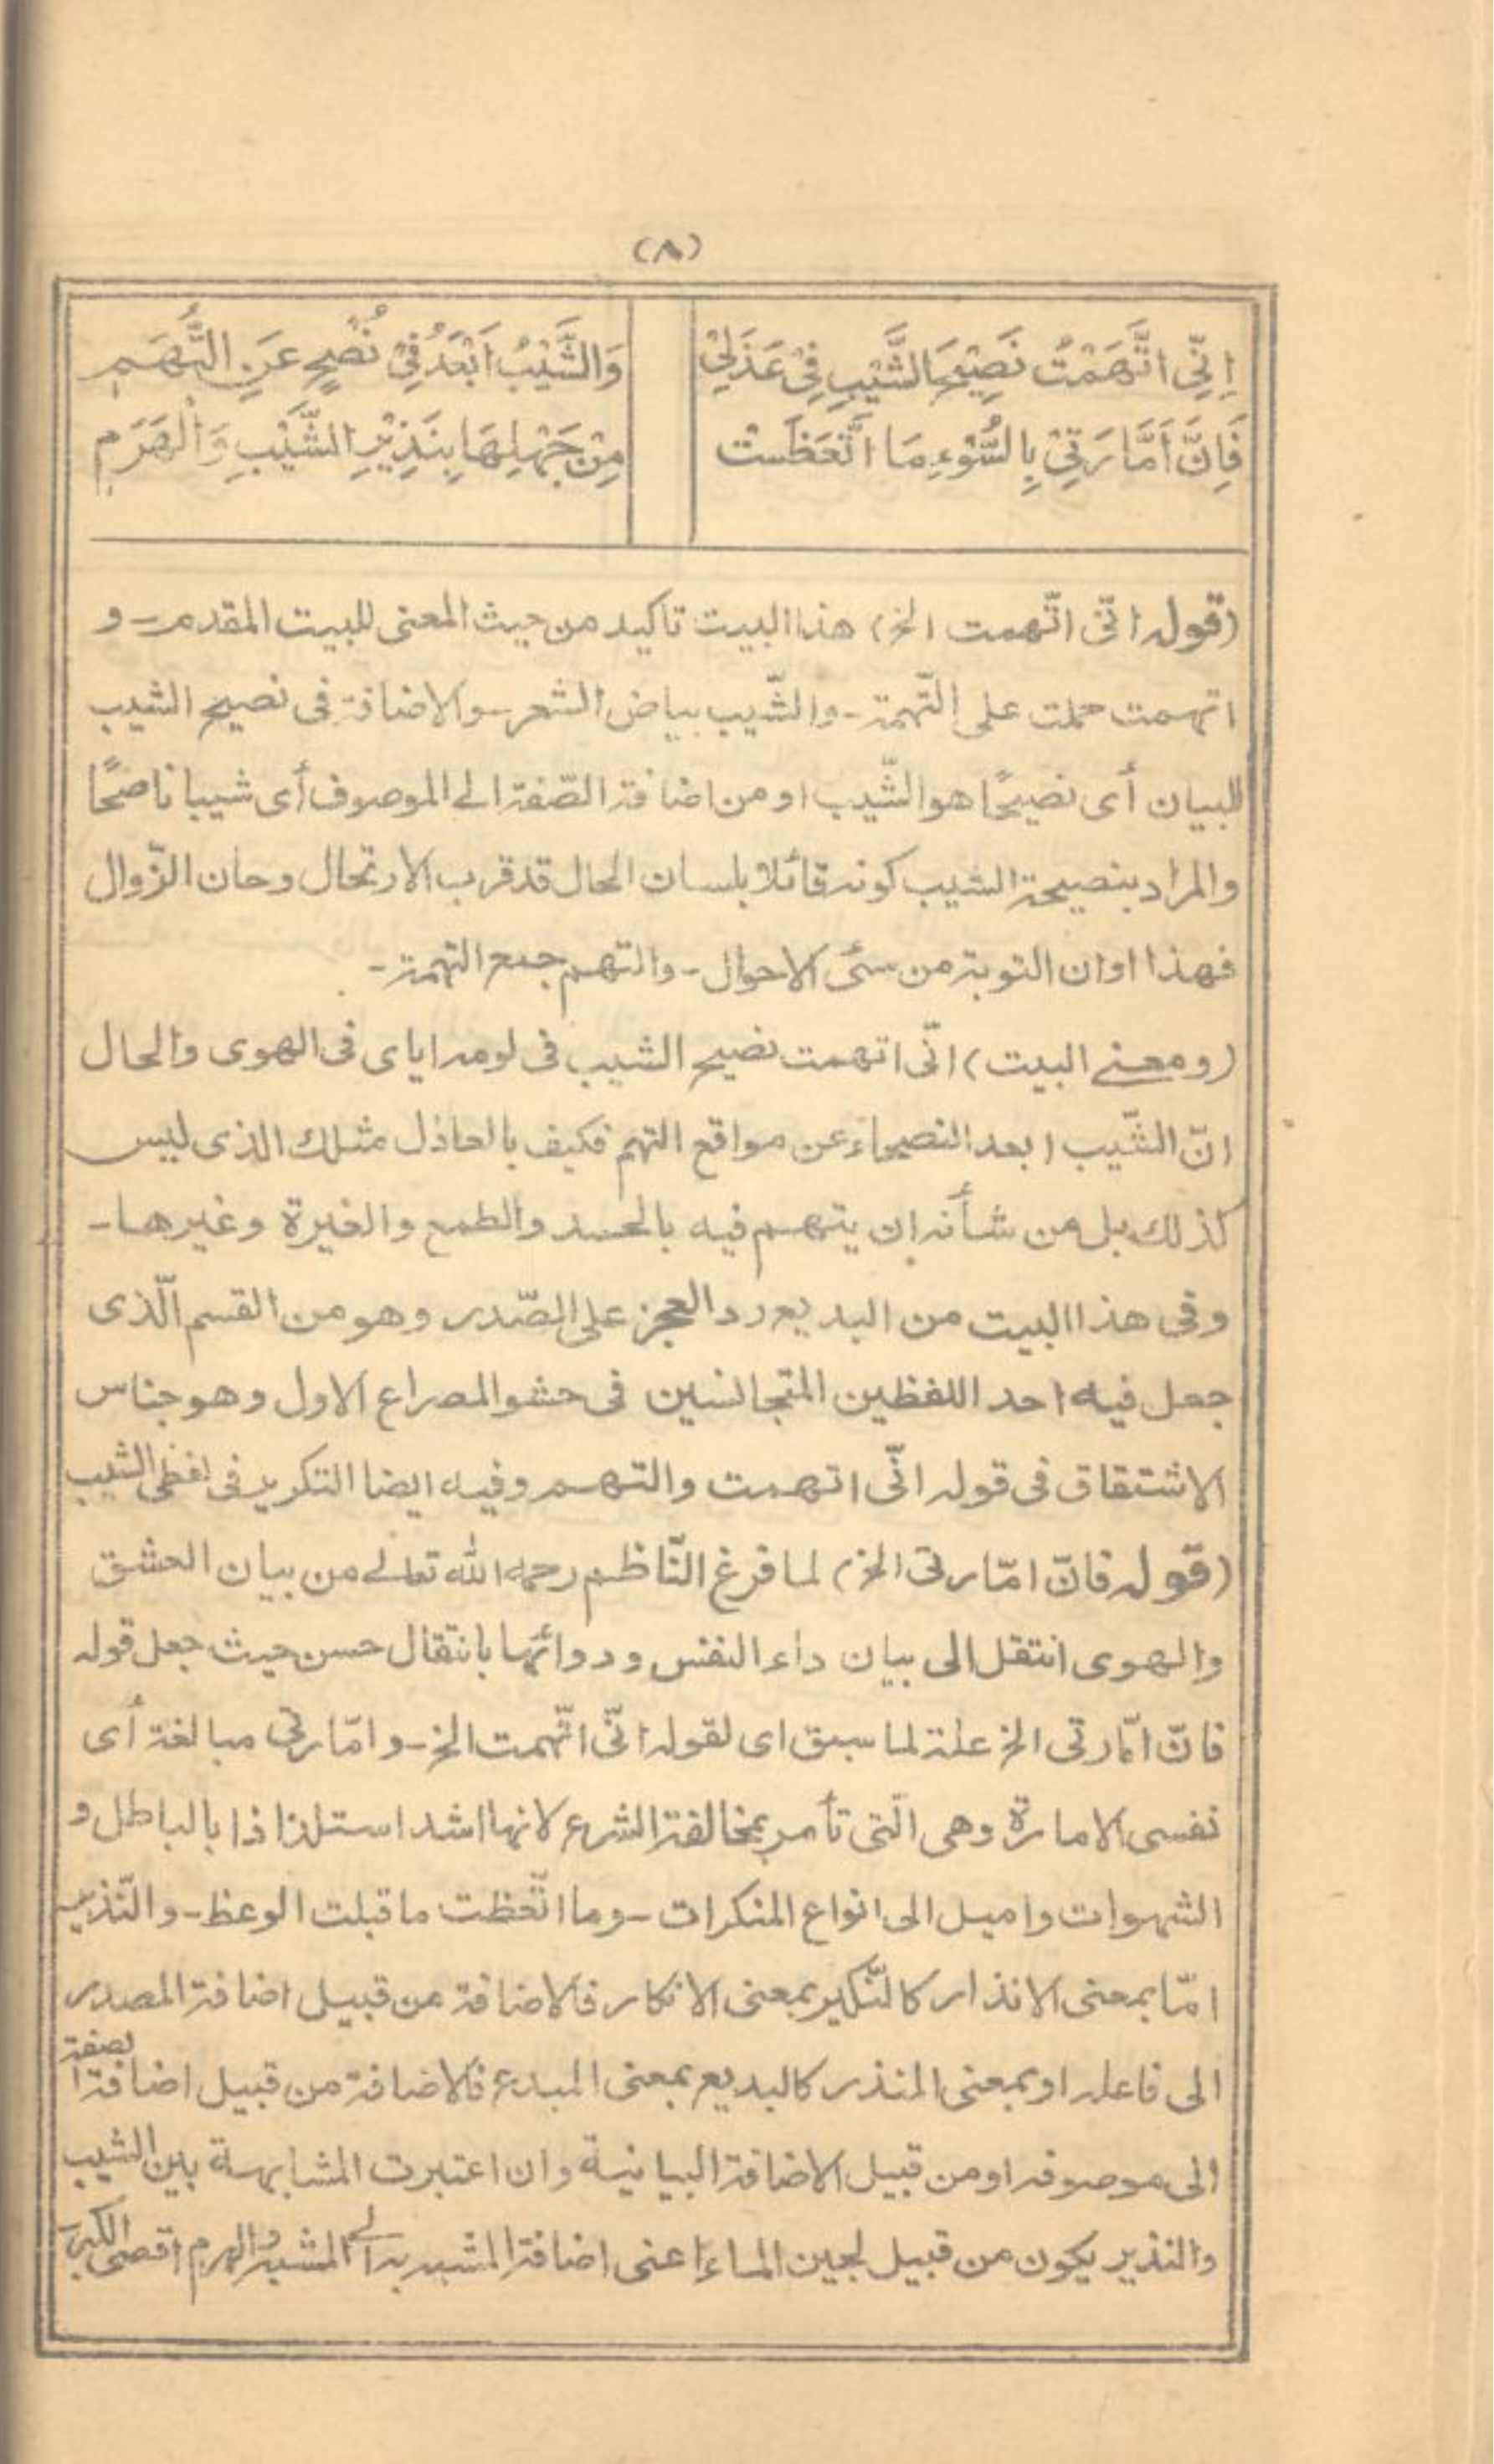 (٨)
اِنِّى اتَّهَمْتُ نَصِيْحَ الشَّيْبِ فِيْ عَذَلِيْ وَالشَّيْبُ اَبْعَدُ فِيْ نُصْحٍ عَنِ التُّهَمِ
فَاِنَّ اَمَّارَتِيْ بِالسُّوْءِ مَا اتَّعَظَتْ مِنْ جَهْلِهَا بِنَذِيْرِ الشَّيْبِ وَالْهَرَمِ
(قوله انّى اتّهمت الخ) هذا البيت تاكيد من حيث المعنى للبيت المقدم - و
اتهمت حملت على التّهمة - والشّيب بياض الشعر - والاضافة فى نصيح الشيب
للبيان أى نصيحًا هو الشّيب او من اضافة الصّفة الى الموصوف أى شيبا ناصحًا
والمراد بنصيحة الشيب كونه قائلا بلسان الحال قد قرب الارتحال وحان الزّوال
فهذا اوان التوبة من سئ الاحوال - والتهم جمع التهمة -
(ومعنى البيت) انّى اتهمت نصيح الشيب فى لومه اياى فى الهوى والحال
انّ الشّيب ابعد النصحاء عن مواقع التهم فكيف بالعاذل مثلك الذى ليس
كذلك بل من شأنه ان يتهم فيه بالحسد والطمع والغيرة وغيرها -
وفى هذا البيت من البديع رد العجز على الصّدر وهو من القسم الّذى
جعل فيه احد اللفظين المتجانسين فى حشو المصراع الاول وهو جناس
الاشتقاق فى قوله انّى اتهمت والتهم وفيه ايضا التكرير فى لفظى الشيب
(قوله فانّ امّارتى الخ) لما فرغ النّاظم رحمه الله تعالى من بيان العشق
والهوى انتقل الى بيان داء النفس ودوائها بانتقال حسن حيث جعل قوله
فانّ امّارتى الخ علة لما سبق اى لقوله انّى اتّهمت الخ - و امّارتى مبالغة أى
نفسى الامارة وهى الّتى تأمر بمخالفة الشرع لانها اشد استلذاذا بالباطل و
الشهوات واميل الى انواع المنكرات - وما اتّعظت ما قبلت الوعظ - والنّذير
امّا بمعنى الانذار كالنّكير بمعنى الانكار فالاضافة من قبيل اضافة المصدر
الى فاعله او بمعنى المنذر كالبديع بمعنى المبدع فالاضافة من قبيل اضافة الصفة
الى موصوفه او من قبيل الاضافة البيانية وان اعتبرت المشابهة بين الشيب
والنذير يكون من قبيل لجين الماء اعنى اضافة المشبه به الى المشبه والهرم اقصى الكبر